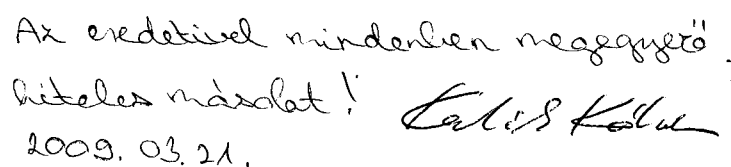 Az eredetivel mindenben megegyező
hiteles másolat!
2009. 03. 21.